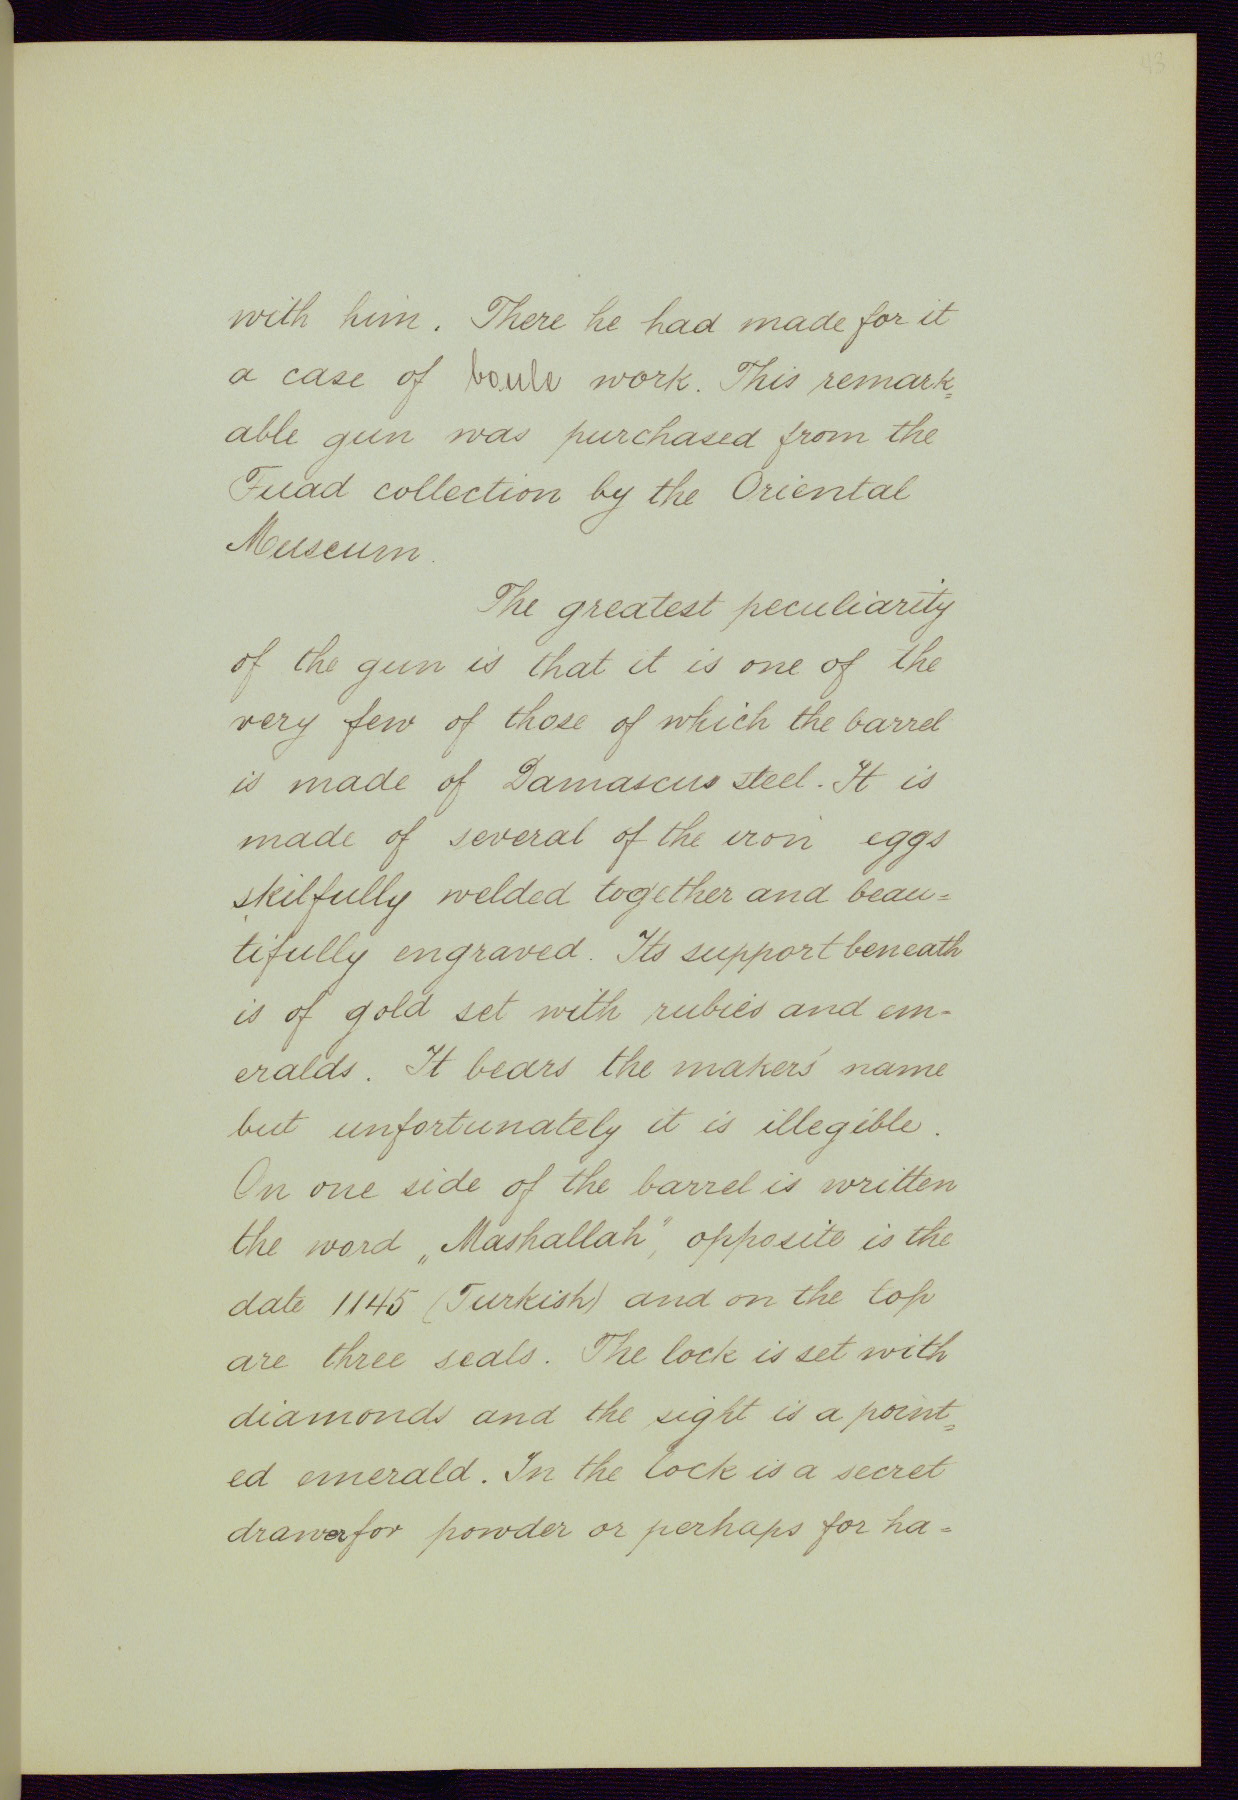 43
with him. There he had made for it
a case of boule work. This remark=
able gun was purchased from the
Fuad collection by the Oriental
Museum.
The greatest peculiarity
of the gun is that it is one of the
very few of those of which the barrel
is made of Damascus steel. It is
made of several of the iron eggs
skilfully welded together and beau=
tifully engraved. Its support beneath
is of gold set with rubies and em-
eralds. It bears the makers' name
but unfortunately it is illegible.
On one side of the barrel is written
the word „Mashallah", opposite is the
date 1145 (Turkish) and on the top
are three seals. The lock is set with
diamonds and the sight is a point=
ed emerald. In the lock is a secret
drawer for powder or perhaps for ha=